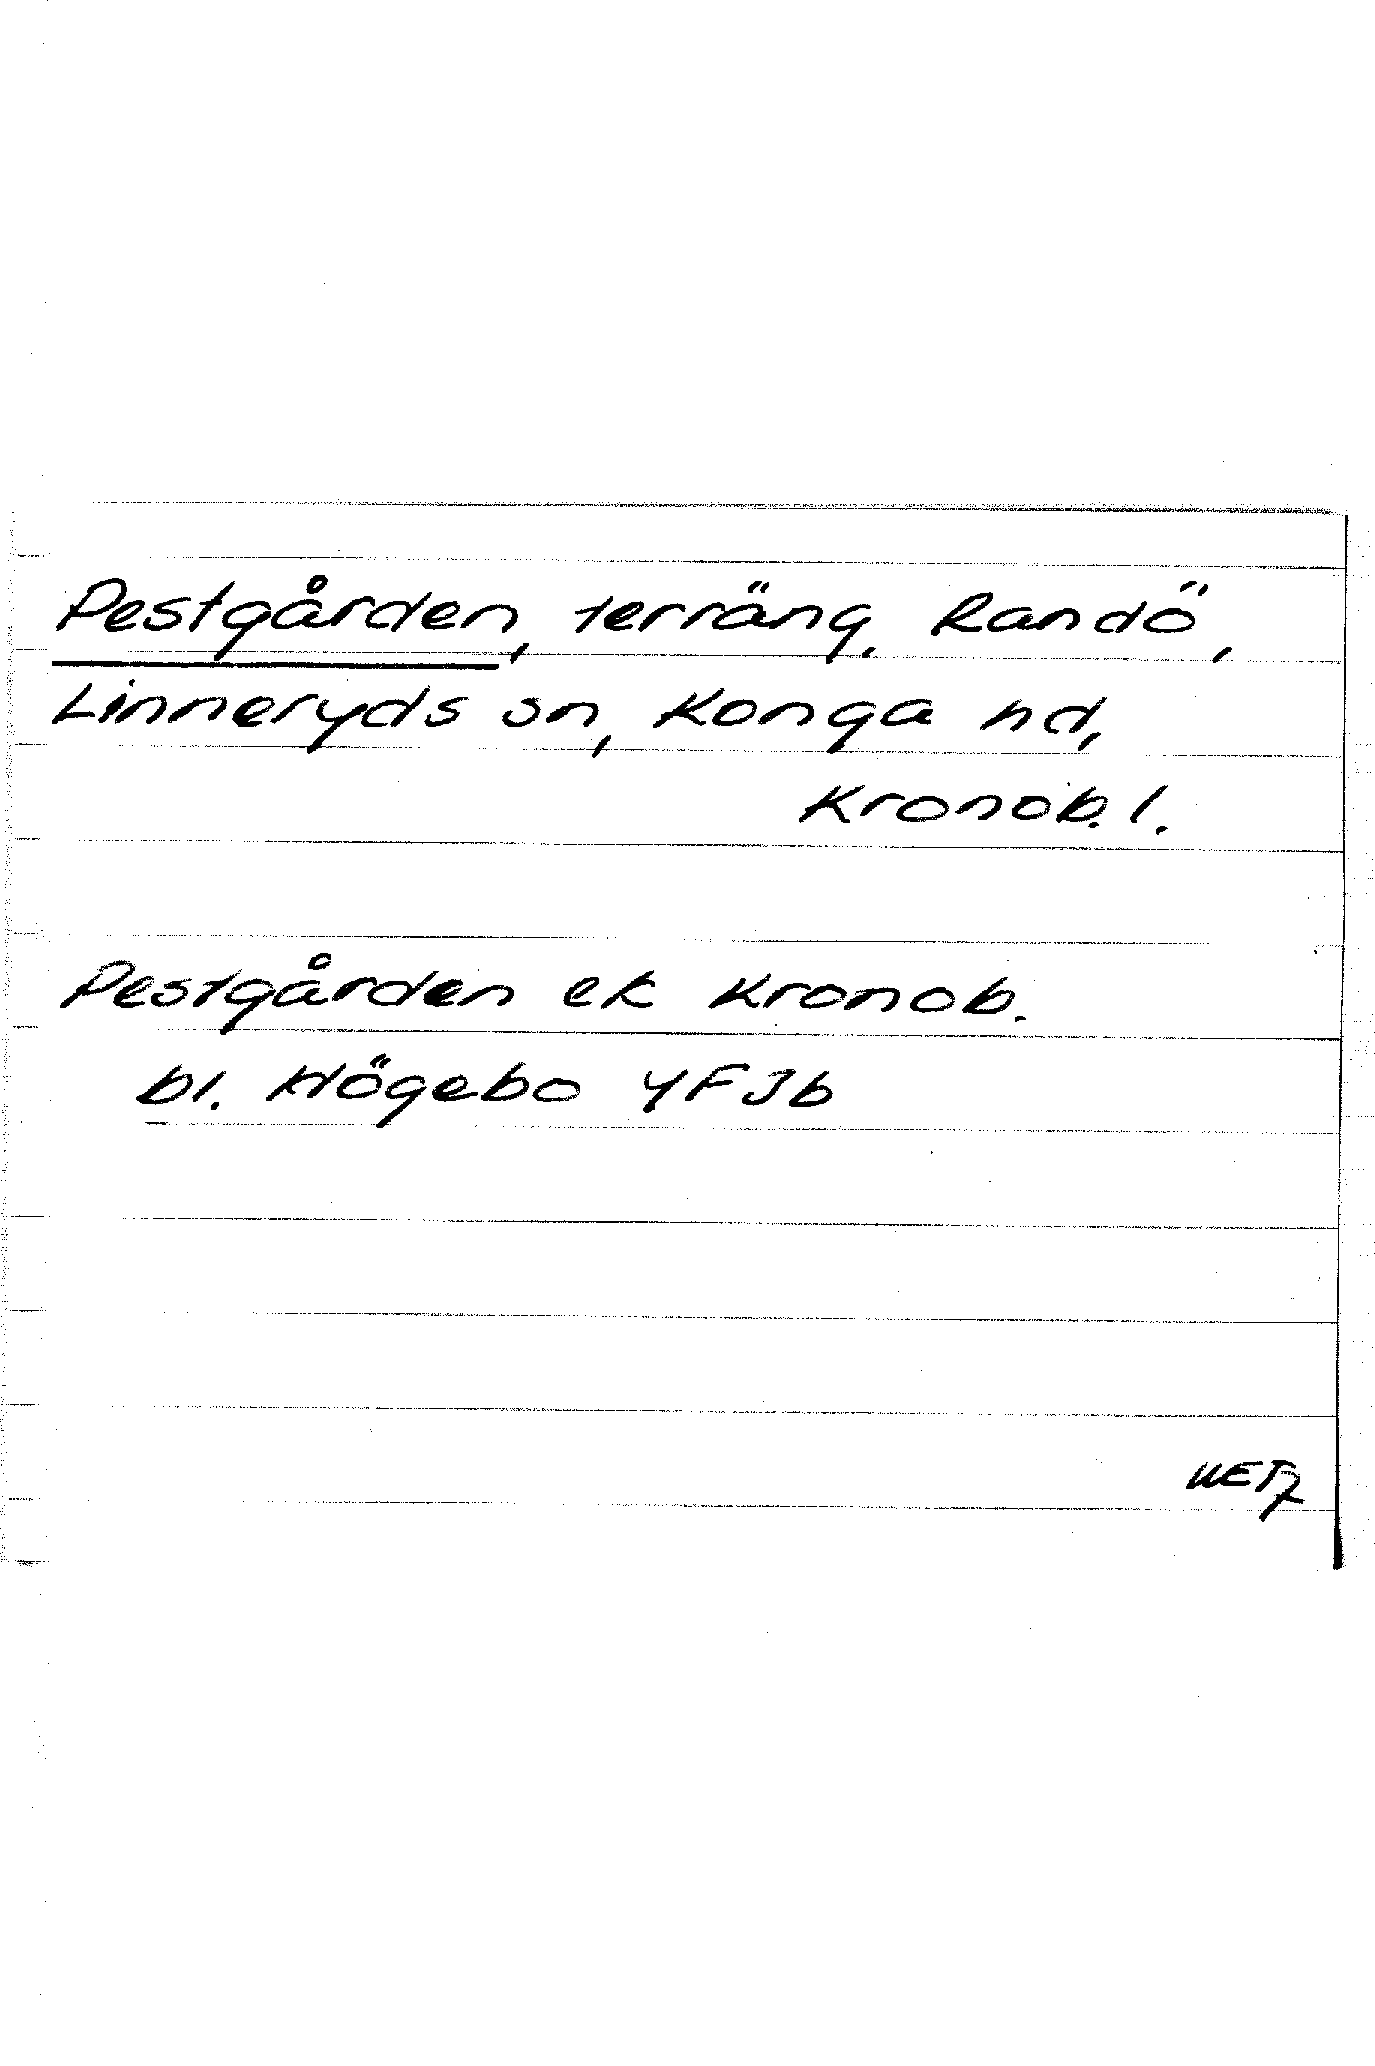 Pestgården, terräng, Randö,
Linneryds sn, Konga hd,
Kronob. l.
Pestgården ek Kronob.
bl. Högebo 4F3b